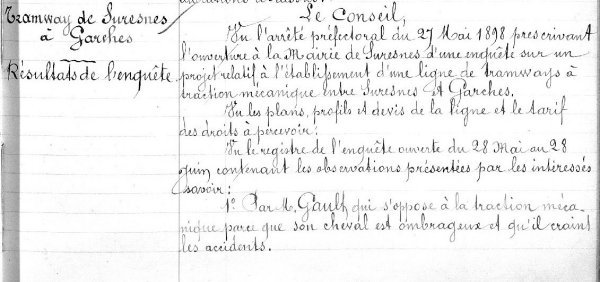 Tramway de Suresnes
à
Garches
Résultats de l'enquête
Le Conseil,
Vu l'arrêté préfectoral du 27 Mai 1898 prescrivant
l'ouverture à la Mairie de Suresnes d'une enquête sur un
projet relatif à l'établissement d'une ligne de tramways à
traction mécanique entre Suresnes et Garches.
Vu les plans, profils et devis de la ligne et le tarif
des droits à percevoir;
Vu le registre de l'enquête ouverte du 28 Mai au 28
Juin contenant les observations présentées par les intéressés
savoir:
1° Par M. Gault, qui s'oppose à la traction méca-
nique parce que son cheval est ombrageux et qu'il craint
les accidents.